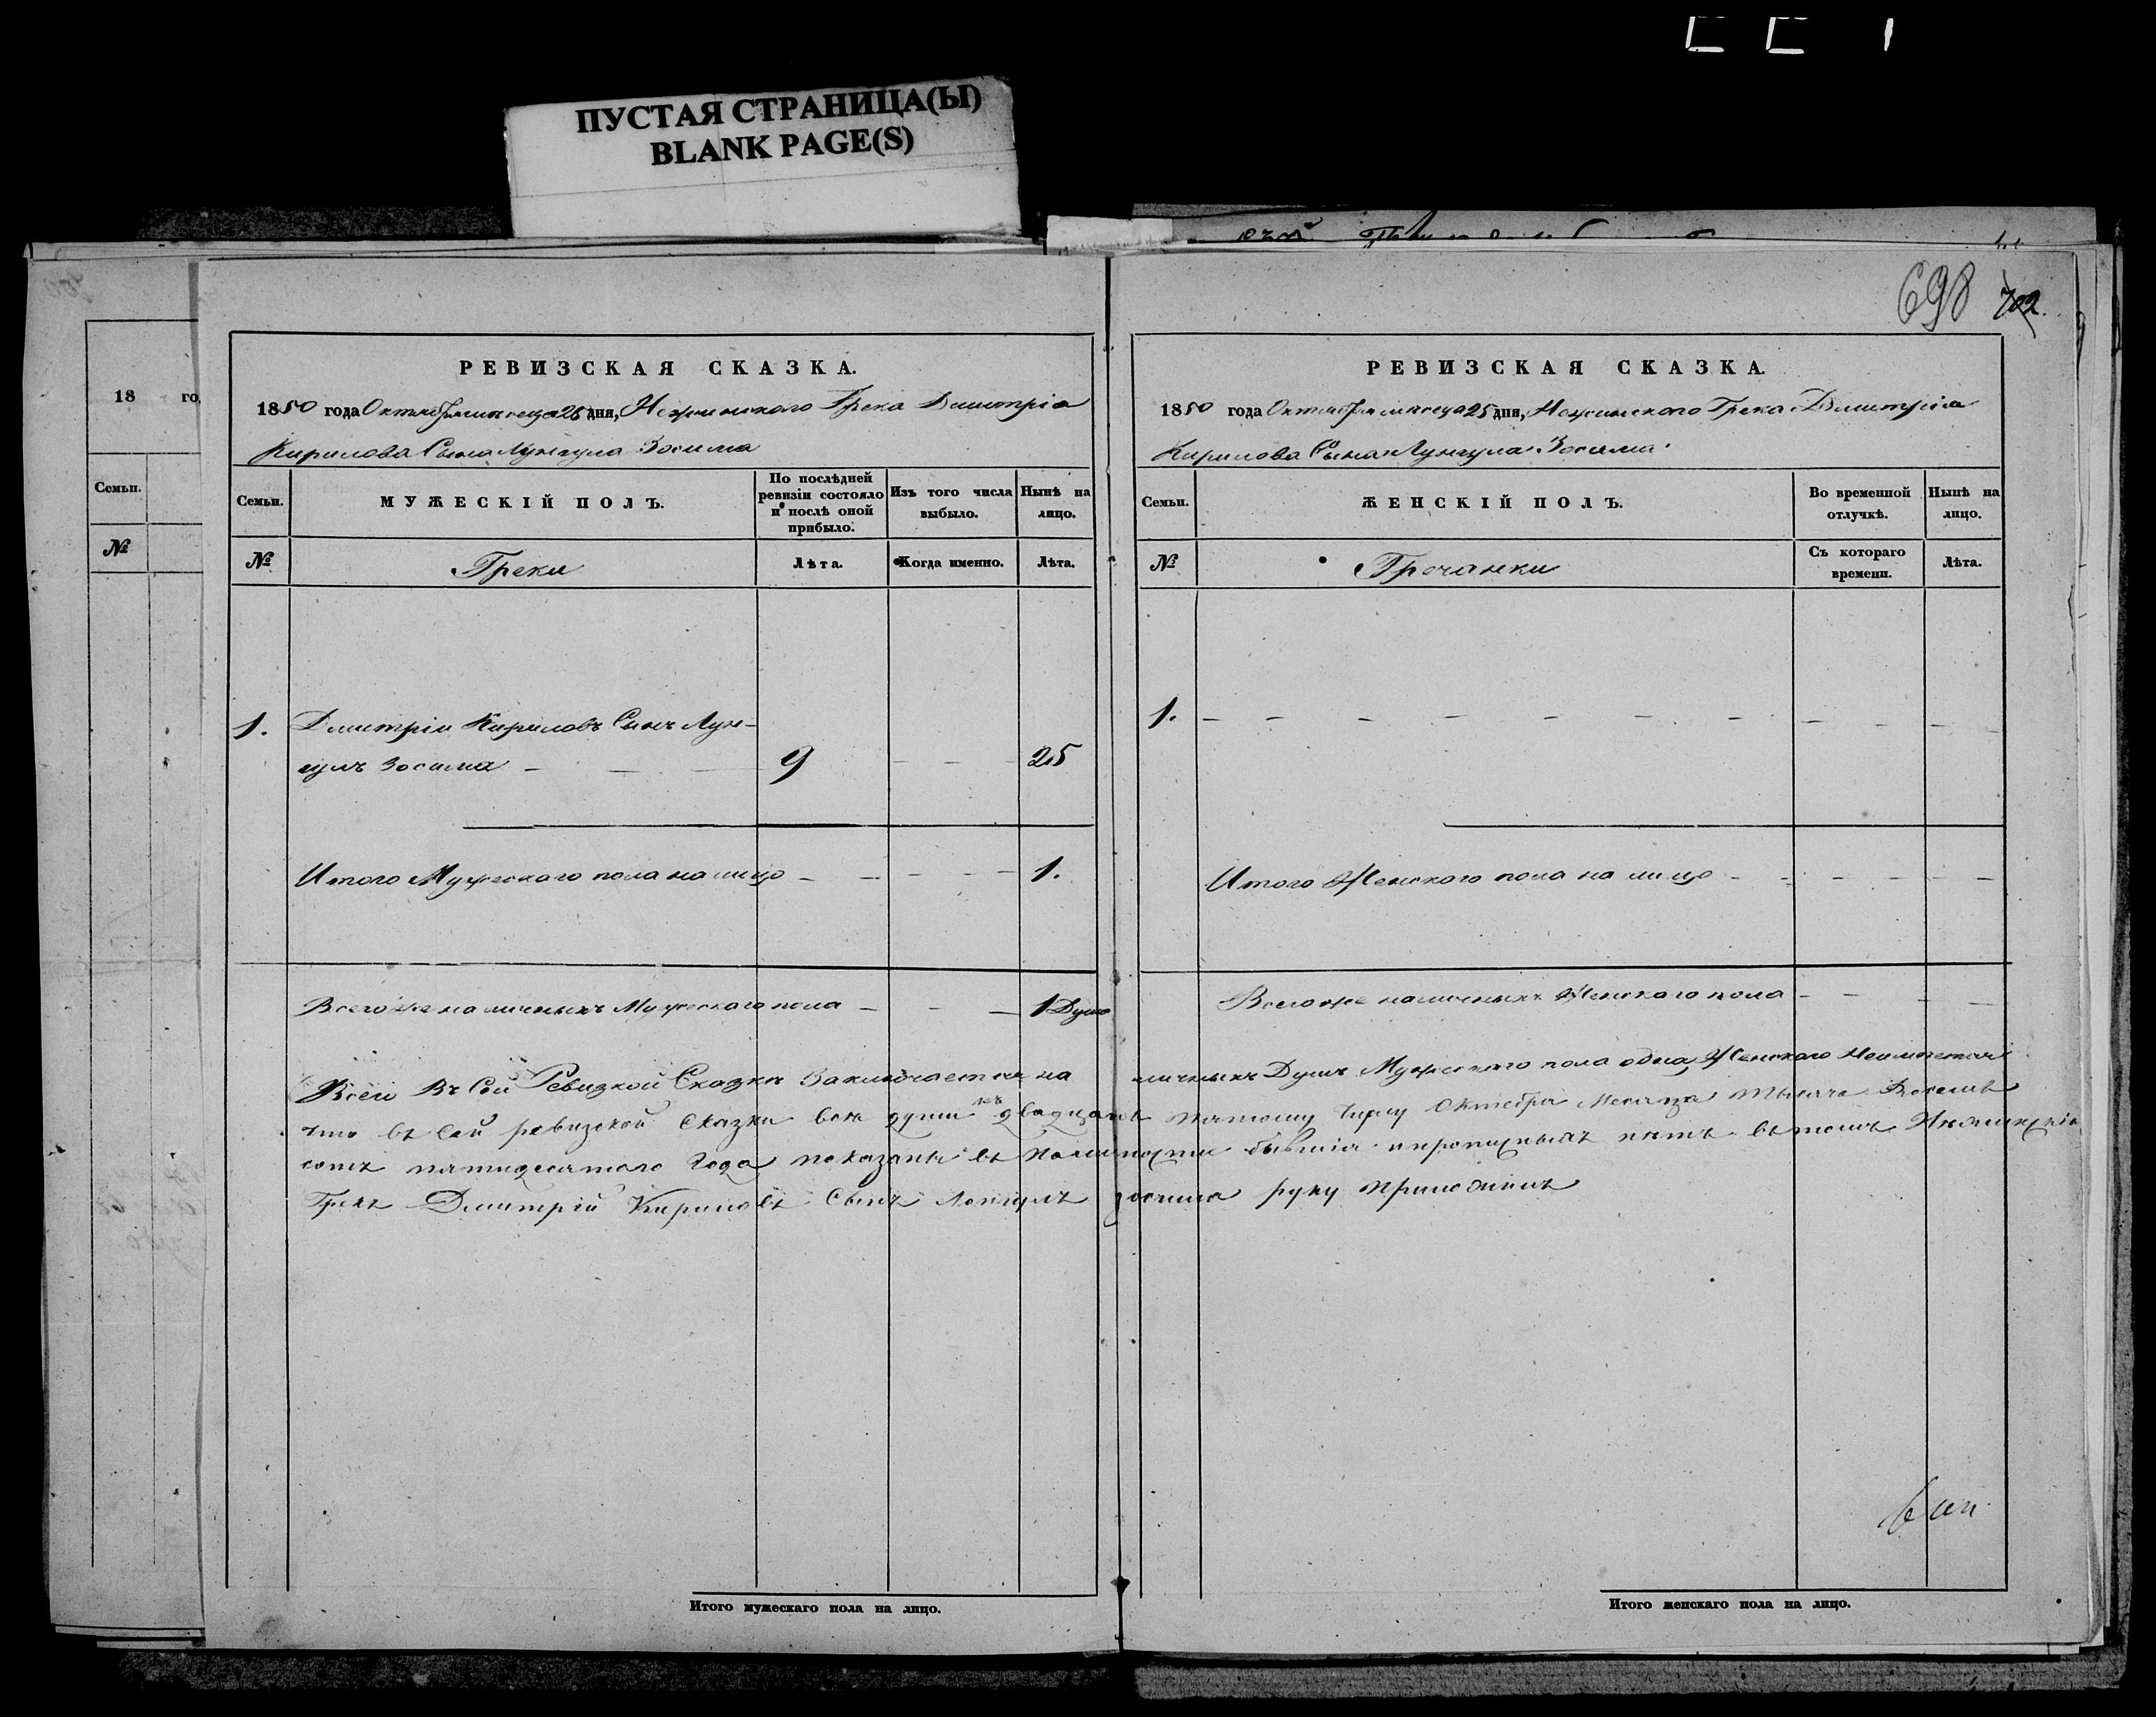 ПУСТАЯ СТРАНИЦА(Ы)
BLANK PAGE(S)
698 702.
18 го
Семьи.
№
РЕВИЗСКАЯ СКАЗКА.
1850 года Октября месяца 25 дня, Нежинского Грека Дмитрія
Кирилова Сына Лунгула Зосима
Семьи.
МУЖЕСКІЙ ПОЛЪ.
По послѣдней ревизіи состояло и послѣ оной прибыло.
Изъ того числа выбыло.
Нынѣ на лицо.
№
Греки
Лѣта.
Когда именно.
Лѣта.
1. Дмитріи Кириловъ Сынъ Лун-
гулъ Зосима — — — 9 — — — 25
Итого Мужескаго пола на лицо — — — — — 1.
Всего же на личныхъ Мужескаго пола — — — 1 Душа
РЕВИЗСКАЯ СКАЗКА.
1850 года Октября месяца 25 дня, Нежинского Грека Дмитрія
Кирилова Сына Лунгула Зосима
Семьи.
ЖЕНСКІЙ ПОЛЪ.
Во временной отлучкѣ.
Нынѣ на лицо.
№
Гречанки
Съ котораго времени.
Лѣта.
1. — — — — — — — — — —
Итого Женского пола на лицо — — — — — — —
Всего же наличныхъ Женского пола — — — —
Всего Въ Сей Ревизкой Сказки Заключается на личныхъ Душъ Мужеского пола одна, Женского Неимеется
что въ Сей ревизской Сказки все души къ двадцать пятому числу Октебря Месяца тысяча Восемь
сотъ пятидесятого Года показаны въ наличности бывшія и пропущныхъ нетъ въ томъ
Грекъ Дмитрій Кириловъ Сынъ Лонгулъ зосима руку приложилъ
Итого мужескаго пола на лицо.
Итого женскаго пола на лицо.